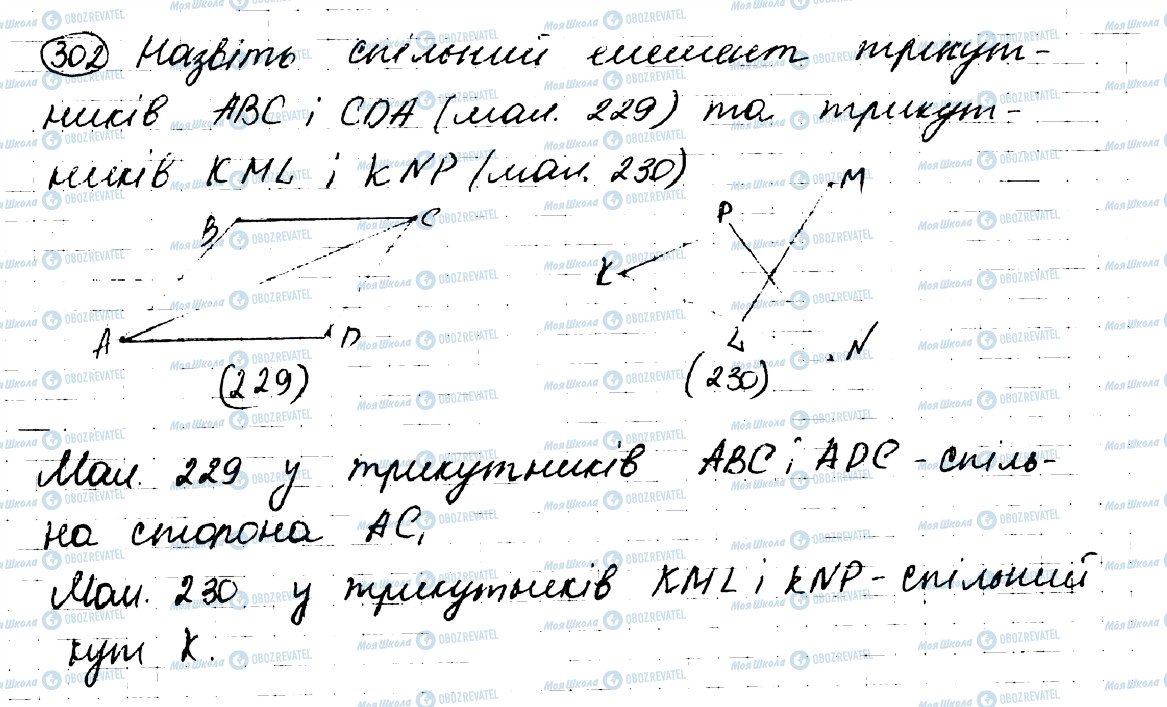 302 Назвіть спільний елемент трикут-
ників ABC і CDA (мал. 229) та трикут-
ників KML і KNP (мал. 230)
B C
A D
(229)
M
P
K
L
N
(230)
Мал. 229 у трикутників ABC і ADC - спіль-
на сторона AC,
Мал. 230 у трикутників KML і KNP - спільний
кут K.
МояШкола OBOZREVATEL